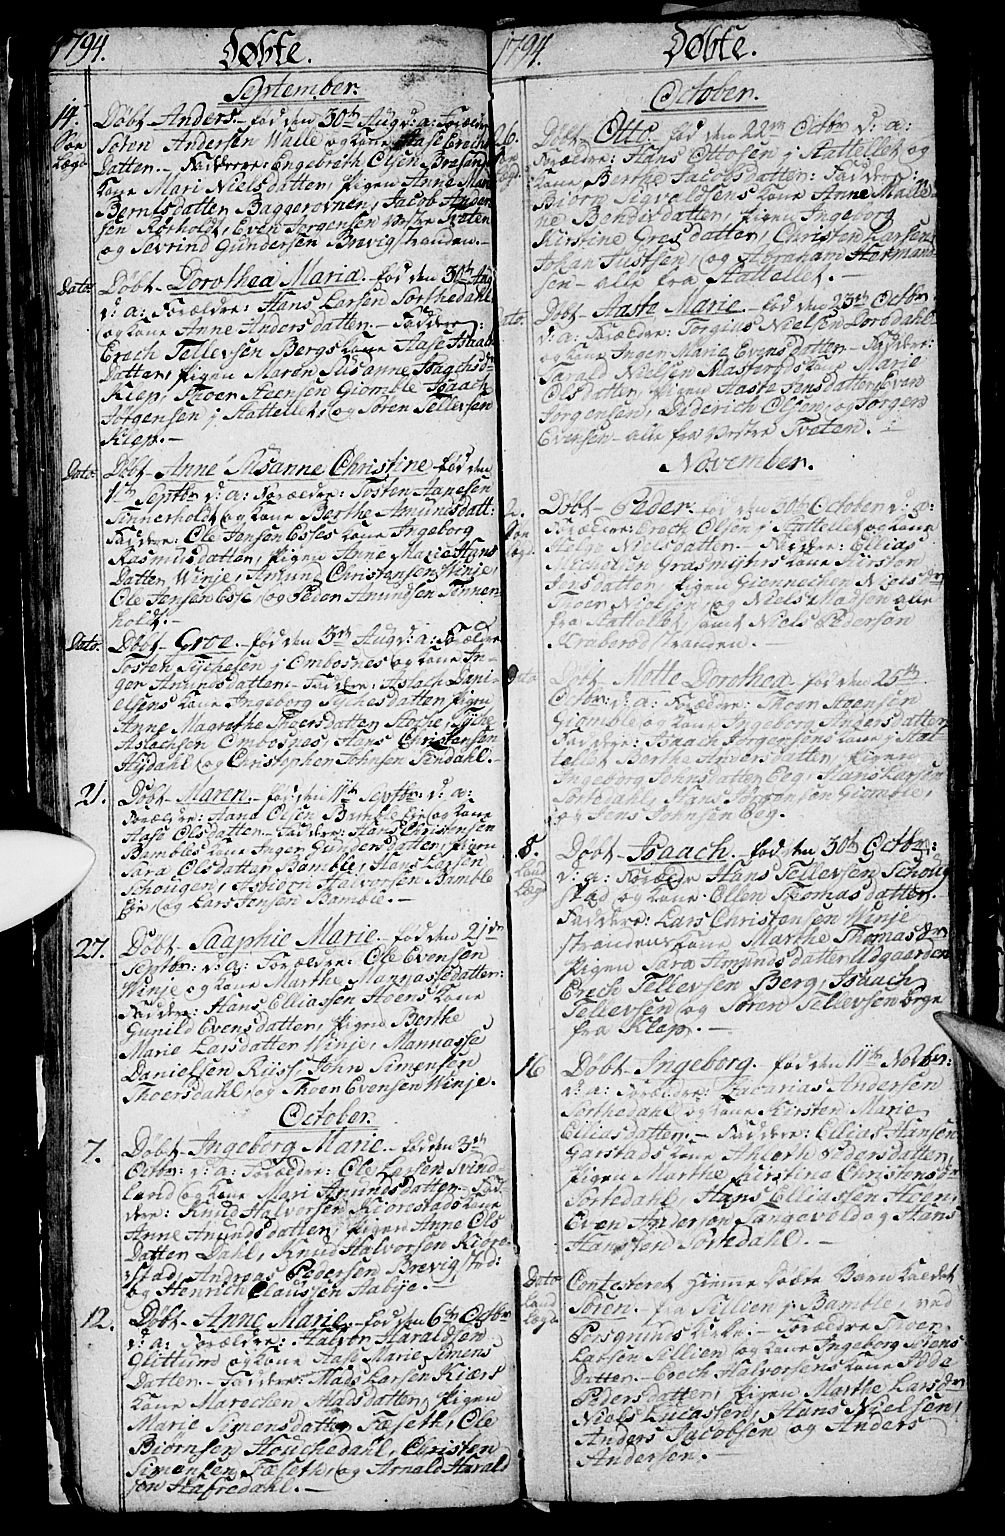 1794.
Døbte.
September.
14.
Døbt Anders. født den 30te Aug: d: a: Forældre
Søren Andersen Walle og kone Aase Erichs
Datter. Faddere: Engebreth Olsen
kone Mari Nielsdatter, Pigen Anne Marie
Berntsdatter Baggerovnen, Jacob Ander-
sen Rørholdt, Even Jørgensen vestre Tveten
og Sevrind Gundersen Brevigstranden.
Dato
Døbt Dorothea Maria født den 30te Aug
d: a: Forældre: Hans Larsen Tørthedahl
og kone Anne Andersdatter. Faddere:
Erich Tellevsen Bergs kone Aase Isaachs
Datter, Pigen Maren Susanne Isaachsdr
Klep, Thoer Steensen Giømble, Isaach
Jørgensen i Stattellet, og Søren Tellevsen
Klep.
Dato
Døbt Anne Susanne Christine født den
1te Septbr d: a: Forældre: Tosten Aanesen
Tinnerholdt og kone Berthe Amundsdatt:
Faddere: Ole Jensen Eses kone Ingeborg
Rasmusdatter, Pigen Anne Marie Hans
Datter Winje, Amund Christensen Winje,
Ole Jensen Ese, og Peder Amundsen Tinner
holdt.
Dato.
Døbt Groe. født den 3te Aug d: a: Forældre
Tosten Tychesen i Ombosnes og kone In-
ger Amundsdatter. Faddere: Aslach Dani-
elsens kone Ingeborg Tychesdatter, Pigen
Anne Magrethe Ingersdatter Stoche, Tyche
Aslachsen Ombosnes, Hans Christensen
Høydahl og Christopher Johnsen Findahl.
21.
Døbt Maren. født den 11te Septbr d: a:
Forældre: Hans Olsen Bamble Eie og kone
Aase Olsdatter. Faddere: Hans Christensen
Bambles kone Inger Gundersdatter, Pigen
Sara Olsdatter Bamble, Hans Larsen
Schougen, Asbiørn Halvorsen Bamble
Eie og Lars Jensen Bamble.
27.
Døbt Saaphie Marie. født den 21de
Septbr: d: a: Forældre: Ole Evensen
Winje og kone Marthe Mannassedatter.
Faddere: Hans Elliassen Hoens kone
Gunild Evensdatter, Pigen Berthe
Marie Larsdatter Winje, Mannasse
Danielsen Riis, John Simensen
Thoersdahl og Thoer Evensen Winje.
October.
7.
Døbt Ingeborg Marie. født den 3te
Octbr: d: a: Forældre: Ole Larsen Svind-
land og kone Mari Amundsdatter. Fad-
dere: Knud Halvorsen Kiørestads kone
Anne Amundsdatter, Pigen Anne Ols
Datter Dahl, Knud Halvorsen Kiøre-
stad, Andreas Pedersen Brevig, 
og Henrich Claussen Habye.
12.
Døbt Anne Marie. født den 6te Octbr
d: a: Forældre: Halvor Haraldsen
Glittund og kone Aase Marie Simens
Datter. Faddere: Mads Larsen Kiærs
kone Marechen Madsdatter, Pigen
Marie Simensdatter Fæseth, Ole
Biørnsen Houchedahl, Christen
Simensen Fæseth, og Arnold Harald
sen Hafredahl.
1794.
Døbte.
October.
26.
Døbt Otto født den 22de Octbr d: a:
Forældre: Hans Ottosen i Stattellet og
kone Berthe Jacobsdatter: Faddere:
Biørn Sigvaldsens kone Anne Malle
ne Bendixdatter, Pigen Ingeborg
Kirstine Gresdatter, Christen Larsen,
Johan Justsen, og Abraham Herman
sen alle fra Stattellet.
Dato.
Døbt Aaste Marie. født den 23de Octbr
d: a: Forældre: Torgius Nielsen Dorsdahl
og kone Inger Marie Evensdatter. Faddere:
Harald Nielsen Masterøds kone Marie
Olsdatter, Pigen Aaste Jensdatter, Even
Jørgensen, Diderich Olsen, og Jørgen
Evensen alle fra Vestre Tveten.
November.
2.
Døbt Peder. født den 30te October d: a:
Forældre: Erich Olsen i Stattellet og kone
Helge Nielsdatter. Faddere: Ellias
Nicholsen Grasmyhrs kone Kirsten
Jensdatter, Pigen Gionnechen Nielsdr
Thoer Nielsen, og Niels Madsen alle
fra Stattellet, samt Niels Pedersen
Krabberødstranden.
Dato
Døbt Mette Dorothea. født den 25te
Octbr: d: a: Forældre: Thoer Steensen
Giømble og kone Ingeborg Andersdatter
Faddere: Isaach Jørgensens kone i Stat
tellet Berthe Andersdatter, Pigen
Ingeborg Johnsdatter Eeg, Hans Larsen
Tørtedahl, Hans Jørgensen Giømble,
og Jens Johnsen Eeg.
8.
Døbt Isaach. født den 30te Octbr:
d: a: Forældre Hans Tellevsen Schoug
stad og kone Ellen Thomasdatter.
Faddere: Lars Christensen Winje
strandens kone Marthe Thomasdr:
Pigen Sara Amundsdatter Udgaarden
Erich Tellevsen Berg, Isaach
Tellevsen og Søren Tellevsen begge
fra Klep.
16
Døbt Ingeborg. født den 11te Novbr:
d: a: Forældre: Zacarias Andersen
Tørthedahl og kone Kirsten Marie
Elliasdatter. Faddere: Ellias Hansen
Garstads kone Ahlerth Pedersdatter,
Pigen Marthe Kirstine Christensdr
Tørtedahl, Hans Elliassen Hoen,
Even Andersen Langevold og Hans
Hanssen Tørtedahl.
Dato
Contesteret hiemme døbte Barn kaldet
Søren. fra Tellien i Bamble, ved
Porsgrunds Kirke. Forældre Thoer
Larsen Tellien og kone Ingeborg Jens
Datter. Erich Halvorsens kone
Pedersdatter, Pigen Marthe Larsdr
Niels Lucassen, Hans Nielsen,
Anders Jacobsen og Anders
Andersen.